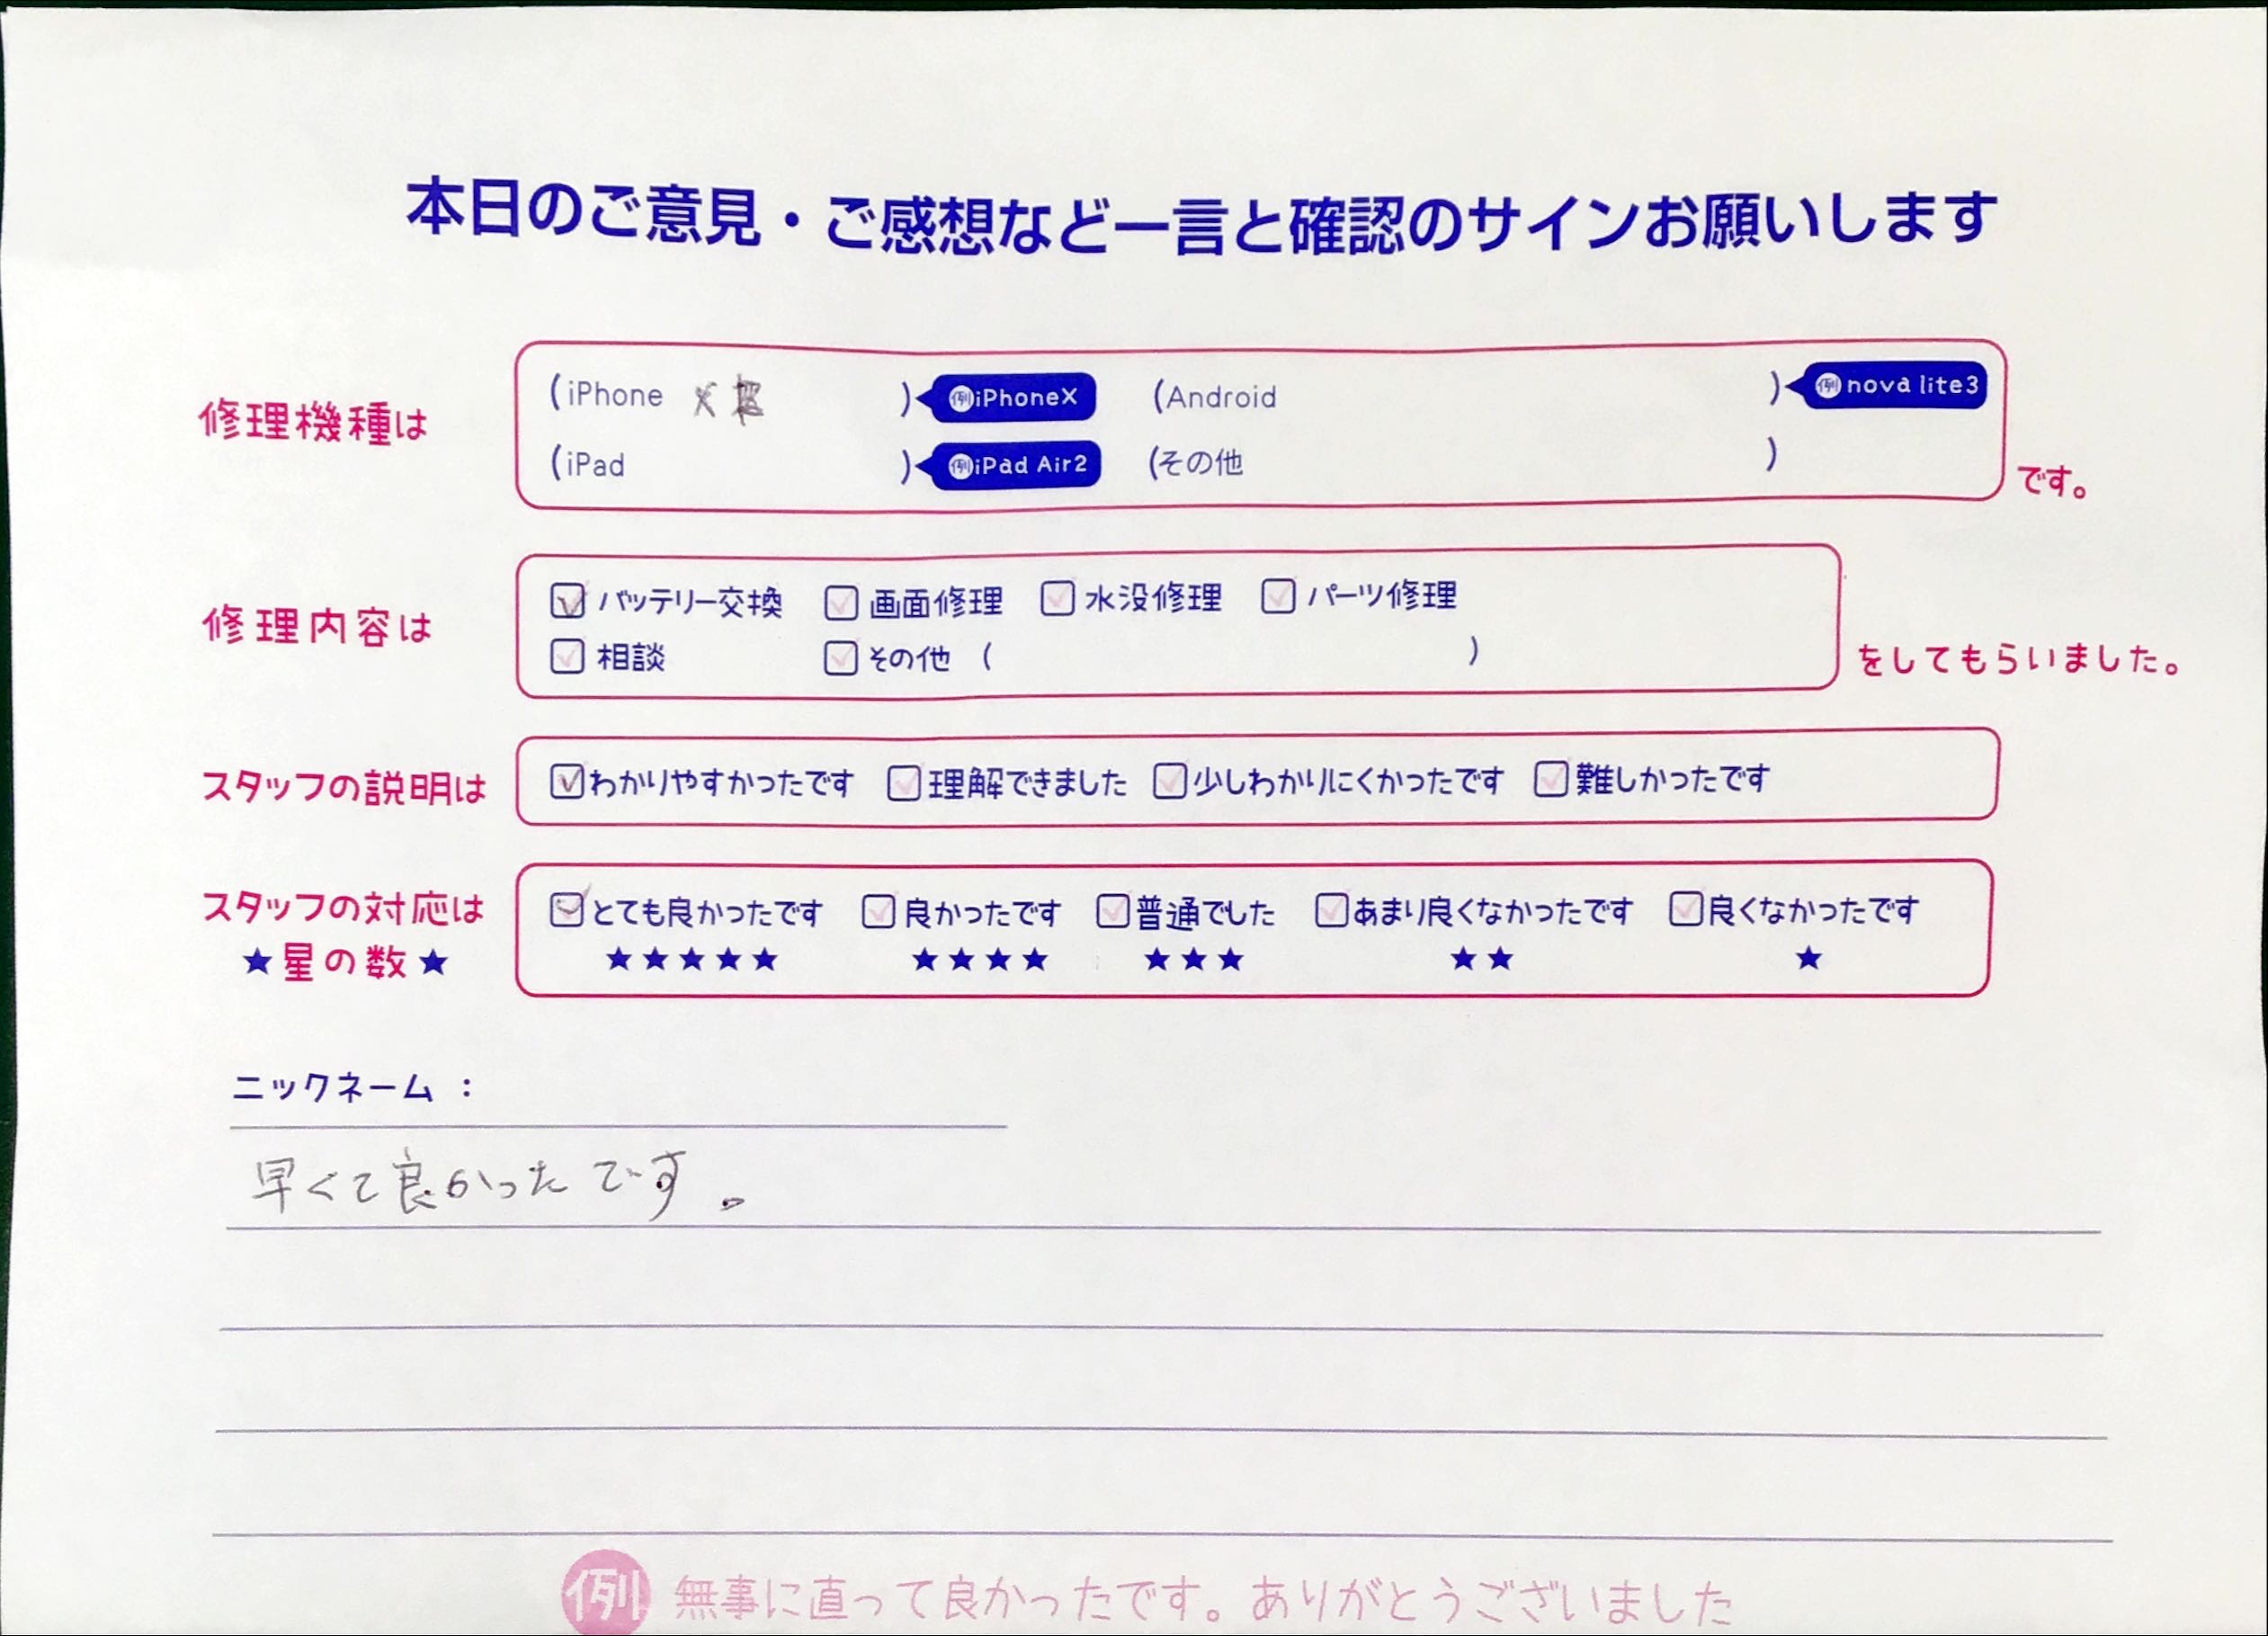 本日のご意見・ご感想など一言と確認のサインお願いします
修理機種は
(iPhone X ) 例iPhoneX (Android ) 例nova lite3
(iPad ) 例iPad Air2 (その他 )
です。
修理内容は
バッテリー交換 画面修理 水没修理 パーツ修理
相談 その他 ( )
をしてもらいました。
スタッフの説明は
わかりやすかったです 理解できました 少しわかりにくかったです 難しかったです
スタッフの対応は
★星の数★
とても良かったです 良かったです 普通でした あまり良くなかったです 良くなかったです
★★★★★ ★★★★ ★★★ ★★ ★
ニックネーム：
早くて良かったです。
例 無事に直って良かったです。ありがとうございました